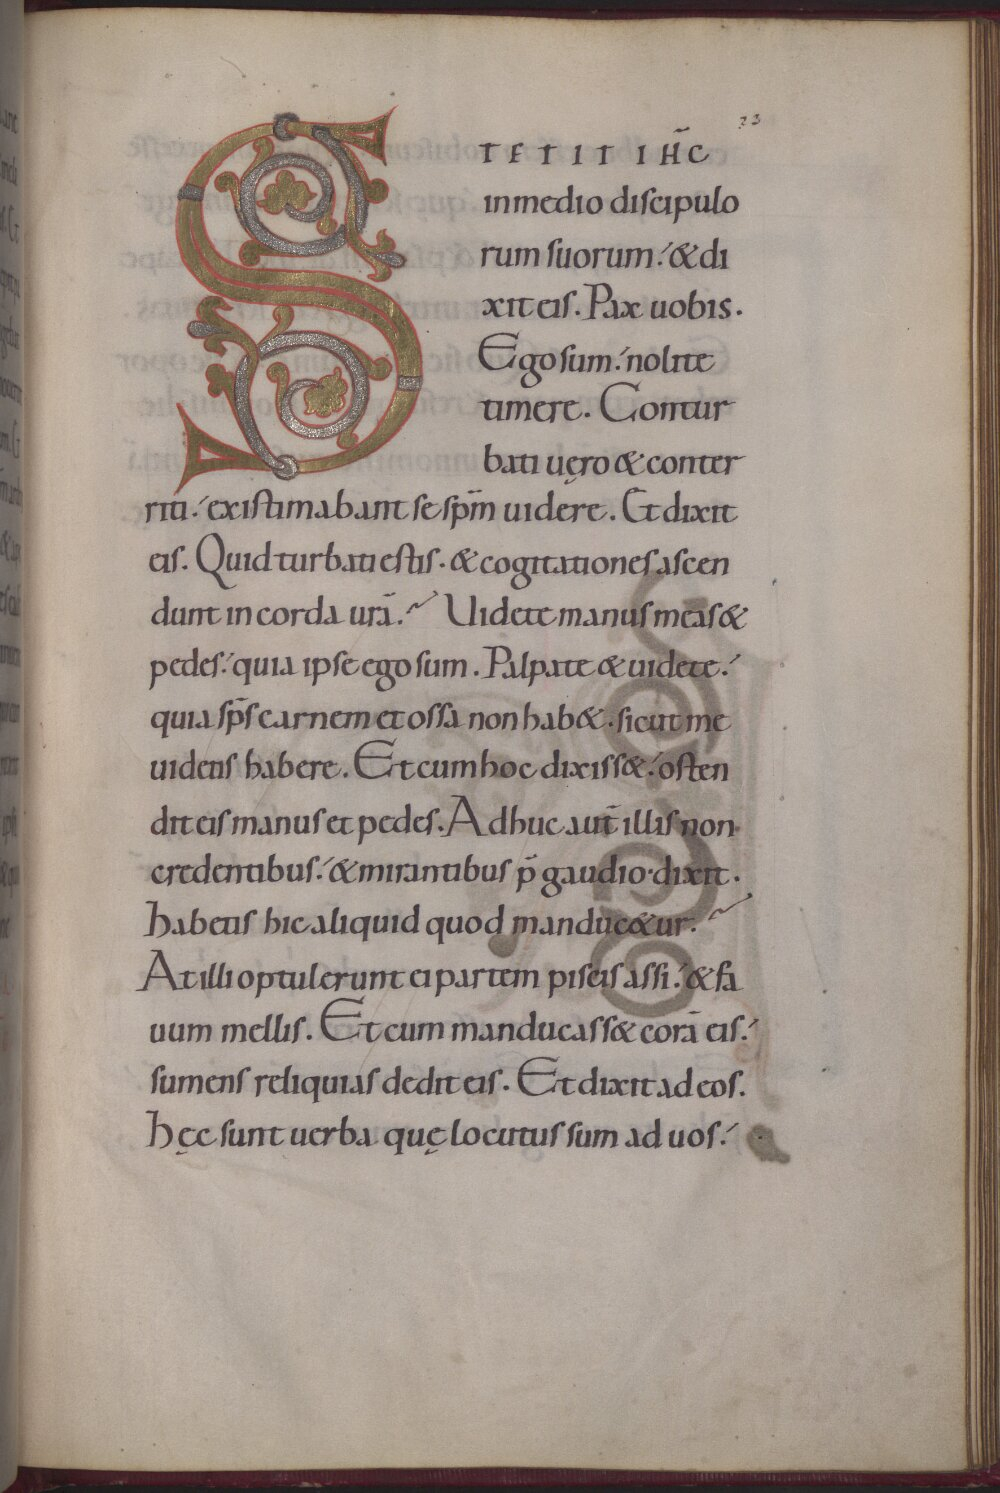 23
STETIT IH̄C
in medio discipulo
rum suorum.' & di
xit eis. Pax uobis.
Ego sum.' nolite
timere. Contur
bati uęro & conter
riti.' existimabant se sp̄m uidere. Et dixit
eis. Quid turbati estis. & cogitationes ascen
dunt in corda urā.~ Uidete manus meas &
pedes.' quia ipse ego sum. Palpate & uidete.'
quia sp̄s carnem et ossa non hab&. sicut me
uidetis habere. Et cum hoc dixiss&.' osten
dit eis manus et pedes. Adhuc aut̄ illis non
credentibus.' & mirantibus p̄ gaudio. dixit.
habetis hic aliquid quod manduc&ur.~
At illi optulerunt ei partem piscis assi.' & fa
uum mellis. Et cum manducass& corā eis.'
sumens reliquias dedit eis. Et dixit ad eos.
hęc sunt uerba quę locutus sum ad uos.'